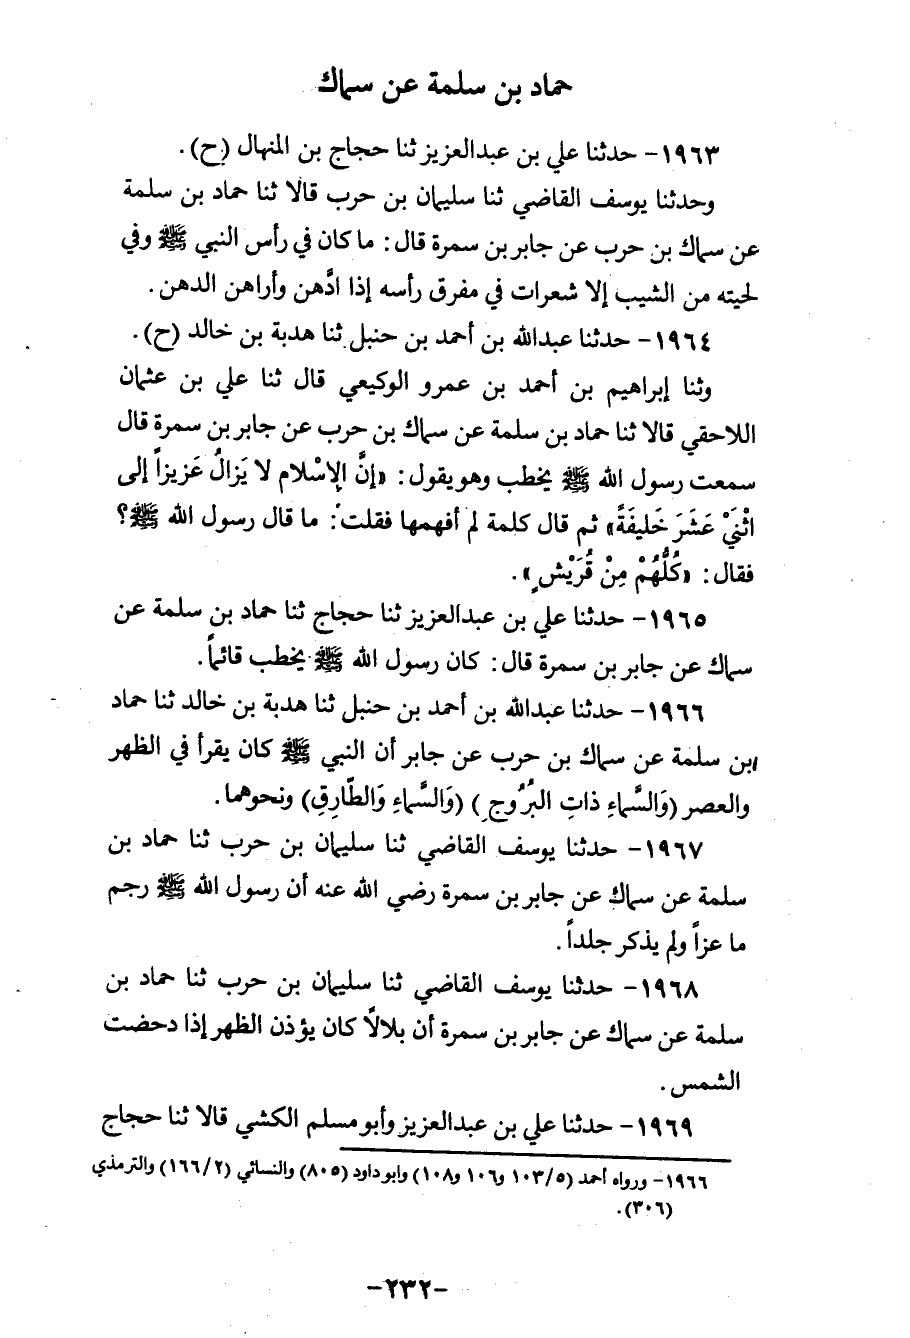 حماد بن سلمة عن سماك
١٩٦٣- حدثنا علي بن عبدالعزيز ثنا حجاج بن المنهال (ح).
وحدثنا يوسف القاضي ثنا سليمان بن حرب قالا ثنا حماد بن سلمة
عن سماك بن حرب عن جابر بن سمرة قال: ما كان في رأس النبي ﷺ وفي
لحيته من الشيب إلا شعرات في مفرق رأسه إذا ادَّهن وأراهن الدهن.
١٩٦٤- حدثنا عبدالله بن أحمد بن حنبل ثنا هدبة بن خالد (ح).
وثنا إبراهيم بن أحمد بن عمرو الوكيعي قال ثنا علي بن عثمان
اللاحقي قالا ثنا حماد بن سلمة عن سماك بن حرب عن جابر بن سمرة قال
سمعت رسول الله ﷺ يخطب وهو يقول: «إنَّ الإِسْلام لا يَزالُ عَزيزاً إلى
اثْنَيْ عَشَرَ خَليفَةً» ثم قال كلمة لم أفهمها فقلت: ما قال رسول الله ﷺ؟
فقال: «كُلُّهُمْ مِنْ قُرَيْشٍ».
١٩٦٥- حدثنا علي بن عبدالعزيز ثنا حجاج ثنا حماد بن سلمة عن
سماك عن جابر بن سمرة قال: كان رسول الله ﷺ يخطب قائماً.
١٩٦٦- حدثنا عبدالله بن أحمد بن حنبل ثنا هدبة بن خالد ثنا حماد
ابن سلمة عن سماك بن حرب عن جابر أن النبي ﷺ كان يقرأ في الظهر
والعصر (وَالسَّماءِ ذاتِ البُرُوجِ) (وَالسَّماءِ وَالطّارِقِ) ونحوهما.
١٩٦٧- حدثنا يوسف القاضي ثنا سليمان بن حرب ثنا حماد بن
سلمة عن سماك عن جابر بن سمرة رضي الله عنه أن رسول الله ﷺ رجم
ما عزاً ولم يذكر جلداً.
١٩٦٨- حدثنا يوسف القاضي ثنا سليمان بن حرب ثنا حماد بن
سلمة عن سماك عن جابر بن سمرة أن بلالاً كان يؤذن الظهر إذا دحضت
الشمس.
١٩٦٩- حدثنا علي بن عبدالعزيز وأبو مسلم الكشي قالا ثنا حجاج
١٩٦٦- ورواه أحمد (١٠٣/٥ و١٠٦ و١٠٨) وابو داود (٨٠٥) والنسائي (١٦٦/٢) والترمذي
(٣٠٦).
-٢٣٢-